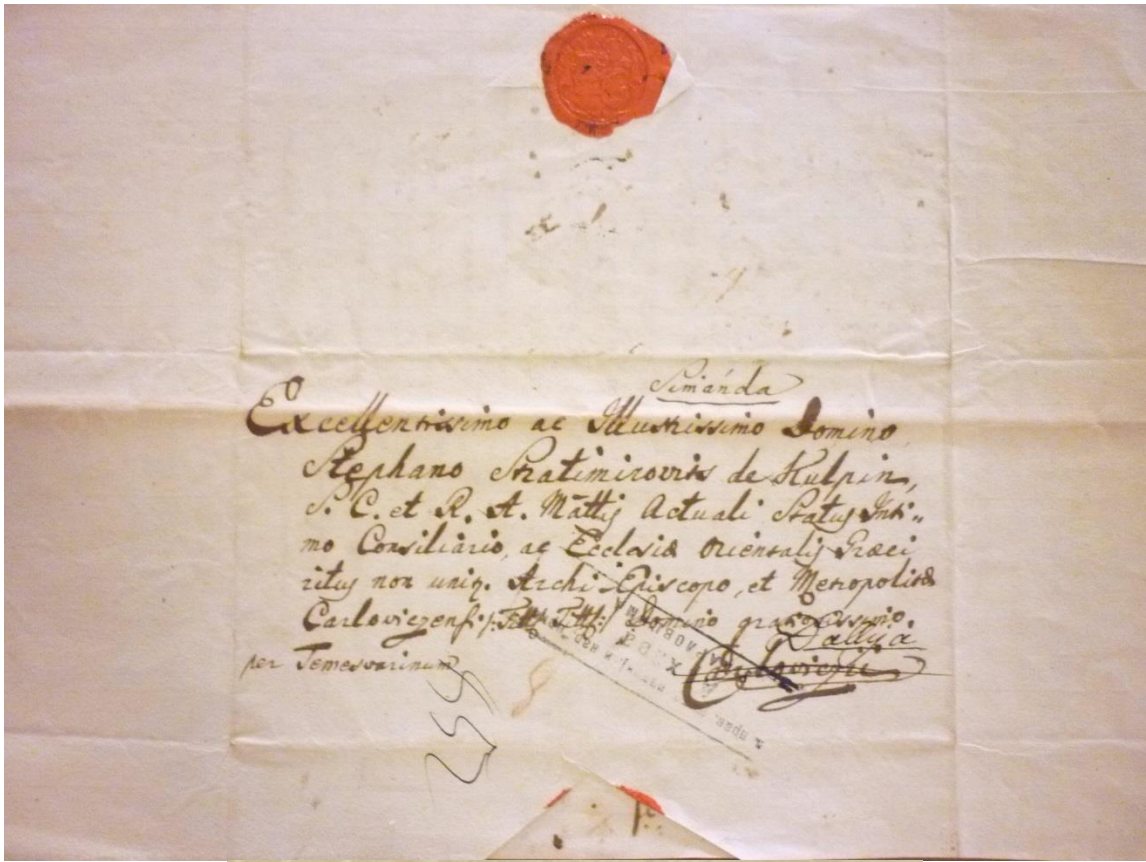 Simánda
Excellentissimo ac Illustrissimo Domino,
Stephano Stratimirovits de Kulpin,
S. C. et R. A. Mattis Actuali Status Inti„
mo Consiliario, ac Ecclesiæ Orientalis Græci
ritus non uniq. Archi Episcopo, et Metropolitæ
Carloviczensi /: Titt. Titt: / Domino gratiosissimo
Dallya
per Temesvarinum
Carloviczii